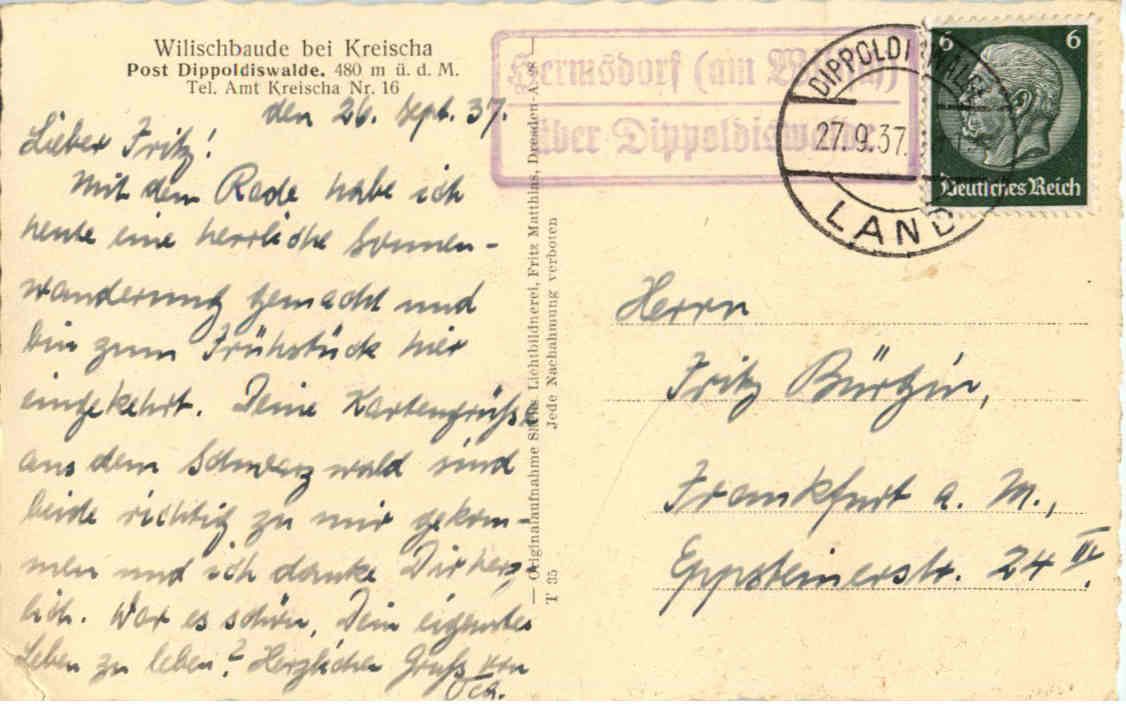 Wilischbaude bei Kreischa
Post Dippoldiswalde. 480 m ü. d. M.
Tel. Amt Kreischa Nr. 16
den 26. Sept. 37.
Lieber Fritz!
Mit dem Rade habe ich
heute eine herrliche Sonnen-
wanderung gemacht und
bin zum Frühstück hier
eingekehrt. Deine Kartengrüße
aus dem Schwarzwald sind
beide richtig zu mir gekom-
men und ich danke Dir herz-
lich. War es schön, Dein eigenstes
Leben zu leben? Herzlichen Gruß von
— Originalaufnahme Sächs. Lichtbildnerei, Fritz Matthias, Dresden-A. 8 —
T 35 Jede Nachahmung verboten
Hermsdorf (am Wilisch)
über Dippoldiswalde
DIPPOLDISWALDE
27.9.37.
LAND
6 6
Deutsches Reich
Herrn
Fritz Bürgin,
Frankfurt a. M.,
Eppsteinerstr. 24 II.